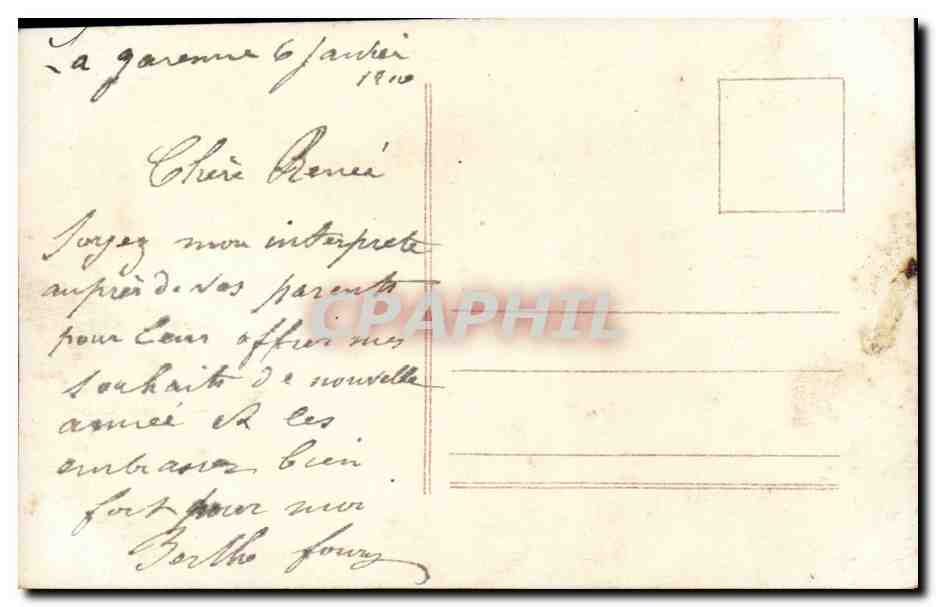 La garenne 6 Janvier
1910
Chère Renée
Soyez mon interprete
auprès de vos parents
pour leur offrir mes
souhaits de nouvelle
année et les
embrasser bien
fort pour moi
Berthe
CPAPHIL